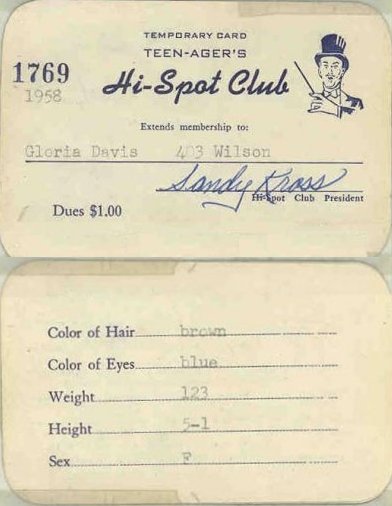 TEMPORARY CARD
TEEN-AGER'S
1769 Hi-Spot Club
1958
Extends membership to:
Gloria Davis 403 Wilson
Sandy Kross
Hi-Spot Club President
Dues $1.00
Color of Hair brown
Color of Eyes blue
Weight 123
Height 5-1
Sex F